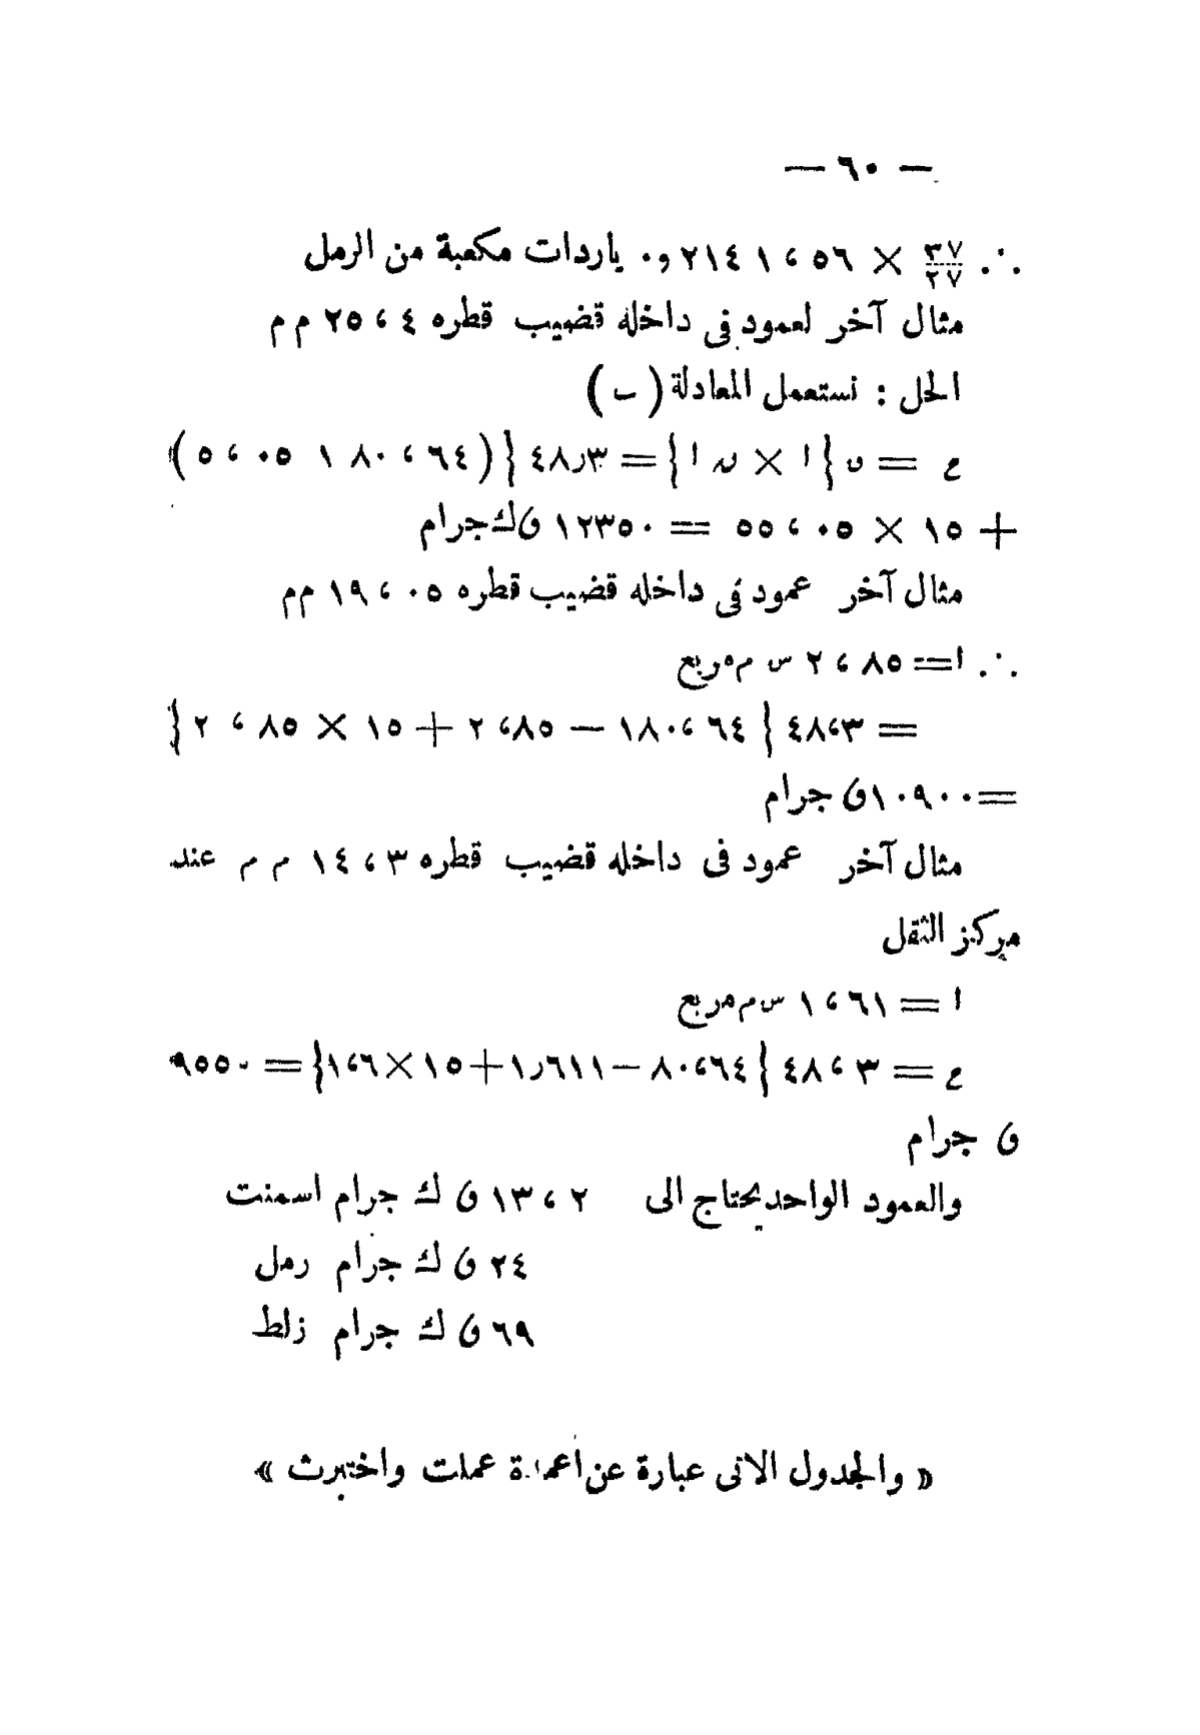 — ٦٠ —
∴ ٣٧/٢٧ × ٥٦ ، ٢١٤١ و٠ ياردات مكعبة من الرمل
مثال آخر لعمود فى داخله قضيب قطره ٤ ، ٢٥ م م
الحل : نستعمل المعادلة ( ب )
ع = ن { ا × ں ا } = ٤٨٫٣ { ( ٦٤ ، ١٨٠ ٠٥ ، ٥ )
+ ١٥ × ٠٥ ، ٥٥ = ١٢٣٥٠ ق ك جرام
مثال آخر عمود فى داخله قضيب قطره ٠٥ ، ١٩ م م
∴ ا = ٨٥ ، ٢ س م مربع
= ٤٨،٣ { ٦٤ ،١٨٠ — ٨٥، ٢ + ١٥ × ٨٥ ، ٢ }
= ١٠٩٠٠ ق جرام
مثال آخر عمود فى داخله قضيب قطره ٣ ، ١٤ م م عند
مركز الثقل
ا = ٦١ ، ١ س م مربع
ع = ٣ ، ٤٨ { ٨٠،٦٤ — ١٫٦١١ + ١٥ × ١،٦ } = ٩٥٥٠
ق جرام
والعمود الواحد يحتاج الى ٢ ، ١٣ ق ك جرام اسمنت
٢٤ ق ك جرام رمل
٦٩ ق ك جرام زلط
« والجدول الاتى عبارة عن أعمدة عملت واختبرت »